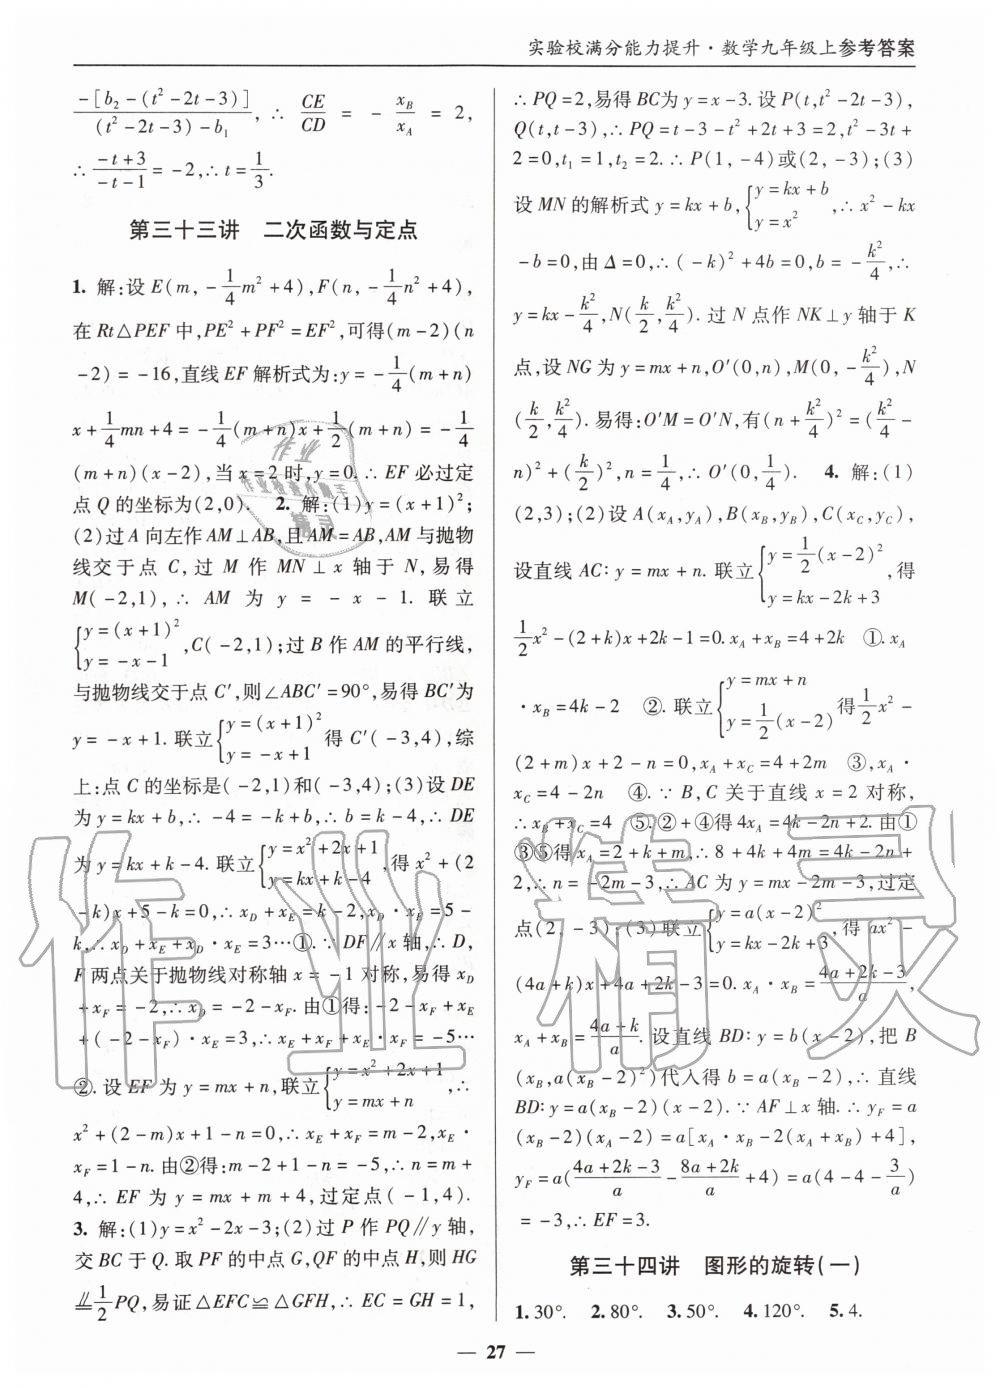 实验校满分能力提升·数学九年级上参考答案
$\frac{-[b_2-(t^2-2t-3)]}{(t^2-2t-3)-b_1}$, ∴ $\frac{CE}{CD}$ = $-\frac{x_B}{x_A}$ = 2,
∴ $\frac{-t+3}{-t-1}$ = -2, ∴ t = $\frac{1}{3}$.
第三十三讲 二次函数与定点
1. 解:设 E(m, $-\frac{1}{4}m^2+4$), F(n, $-\frac{1}{4}n^2+4$),
在 Rt△PEF 中, $PE^2+PF^2=EF^2$, 可得(m-2)(n
-2) = -16, 直线 EF 解析式为: y = $-\frac{1}{4}$(m+n)
x+$\frac{1}{4}$mn+4 = $-\frac{1}{4}$(m+n)x+$\frac{1}{2}$(m+n) = $-\frac{1}{4}$
(m+n)(x-2), 当 x=2 时, y=0. ∴ EF 必过定
点 Q 的坐标为(2,0). 2. 解:(1) $y=(x+1)^2$;
(2)过 A 向左作 AM⊥AB, 且 AM=AB, AM 与抛物
线交于点 C, 过 M 作 MN⊥x 轴于 N, 易得
M(-2,1), ∴ AM 为 y = -x-1. 联立
$\begin{cases}y=(x+1)^2\\y=-x-1\end{cases}$, C(-2,1); 过 B 作 AM 的平行线,
与抛物线交于点 C′, 则∠ABC′=90°, 易得 BC′为
y=-x+1. 联立$\begin{cases}y=(x+1)^2\\y=-x+1\end{cases}$得 C′(-3,4), 综
上:点 C 的坐标是(-2,1)和(-3,4); (3)设 DE
为 y=kx+b, ∴ -4=-k+b, ∴ b=k-4, ∴ DE
为 y=kx+k-4. 联立$\begin{cases}y=x^2+2x+1\\y=kx+k-4\end{cases}$, 得 $x^2$+(2
-k)x+5-k=0, ∴ $x_D+x_E$=k-2, $x_D·x_E$=5-
k, ∴ $x_D+x_E+x_D·x_E$=3…①. ∵ DF∥x 轴, ∴ D,
F 两点关于抛物线对称轴 x=-1 对称, 易得 $x_D$
+$x_F$=-2, ∴ $x_D$=-2-$x_F$. 由①得: -2-$x_F$+$x_E$
+(-2-$x_F$)·$x_E$=3, ∴ $x_E+x_F+x_E·x_F$=-5…
②. 设 EF 为 y=mx+n, 联立$\begin{cases}y=x^2+2x+1\\y=mx+n\end{cases}$, ∴
$x^2$+(2-m)x+1-n=0, ∴ $x_E+x_F$=m-2, $x_E$·
$x_F$=1-n. 由②得: m-2+1-n=-5, ∴ n=m+
4, ∴ EF 为 y=mx+m+4, 过定点(-1,4).
3. 解:(1) $y=x^2-2x-3$; (2)过 P 作 PQ∥y 轴,
交 BC 于 Q. 取 PF 的中点 G, QF 的中点 H, 则 HG
⫫$\frac{1}{2}$PQ, 易证△EFC≌△GFH, ∴ EC=GH=1,
∴ PQ=2, 易得 BC 为 y=x-3. 设 P(t, $t^2-2t-3$),
Q(t,t-3), ∴ PQ=t-3-$t^2$+2t+3=2, $t^2$-3t+
2=0, $t_1$=1, $t_2$=2. ∴ P(1,-4)或(2,-3); (3)
设 MN 的解析式 y=kx+b, $\begin{cases}y=kx+b\\y=x^2\end{cases}$, ∴ $x^2$-kx
-b=0, 由 Δ=0, ∴ $(-k)^2$+4b=0, b=$-\frac{k^2}{4}$, ∴
y=kx-$\frac{k^2}{4}$, N($\frac{k}{2}$,$\frac{k^2}{4}$). 过 N 点作 NK⊥y 轴于 K
点, 设 NG 为 y=mx+n, O′(0,n), M(0,$-\frac{k^2}{4}$), N
($\frac{k}{2}$,$\frac{k^2}{4}$). 易得: O′M=O′N, 有$(n+\frac{k^2}{4})^2$=($\frac{k^2}{4}$-
n)$^2$+$(\frac{k}{2})^2$, n=$\frac{1}{4}$, ∴ O′(0,$\frac{1}{4}$). 4. 解:(1)
(2,3); (2)设 A($x_A,y_A$), B($x_B,y_B$), C($x_C,y_C$),
设直线 AC: y=mx+n. 联立$\begin{cases}y=\frac{1}{2}(x-2)^2\\y=kx-2k+3\end{cases}$, 得
$\frac{1}{2}x^2$-(2+k)x+2k-1=0. $x_A+x_B$=4+2k ①. $x_A$
·$x_B$=4k-2 ②. 联立$\begin{cases}y=mx+n\\y=\frac{1}{2}(x-2)\end{cases}$得$\frac{1}{2}x^2$-
(2+m)x+2-n=0, $x_A+x_C$=4+2m ③, $x_A$·
$x_C$=4-2n ④. ∵ B, C 关于直线 x=2 对称,
∴ $x_B+x_C$=4 ⑤. ②+④得 4$x_A$=4k-2n+2. 由①
③⑤得 $x_A$=2+k+m, ∴ 8+4k+4m=4k-2n+
2, ∴ n=-2m-3, ∴ AC 为 y=mx-2m-3, 过定
点(2,-3); (3)联立$\begin{cases}y=a(x-2)^2\\y=kx-2k+3\end{cases}$, 得 $ax^2$-
(4a+k)x+4a+2k-3=0. $x_A·x_B$=$\frac{4a+2k-3}{a}$,
$x_A+x_B$=$\frac{4a+k}{a}$. 设直线 BD: y=b(x-2), 把 B
($x_B$, $a(x_B-2)^2$)代入得 b=a($x_B$-2), ∴ 直线
BD: y=a($x_B$-2)(x-2). ∵ AF⊥x 轴. ∴ $y_F$=a
($x_B$-2)($x_A$-2)=a[$x_A·x_B$-2($x_A+x_B$)+4],
$y_F$=a($\frac{4a+2k-3}{a}$-$\frac{8a+2k}{a}$+4)=a(4-4-$\frac{3}{a}$)
=-3, ∴ EF=3.
第三十四讲 图形的旋转(一)
1. 30°. 2. 80°. 3. 50°. 4. 120°. 5. 4.
— 27 —
作业精灵